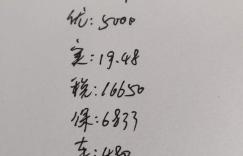 优:5000
宝:19.48
税:16650
保:6833
:480